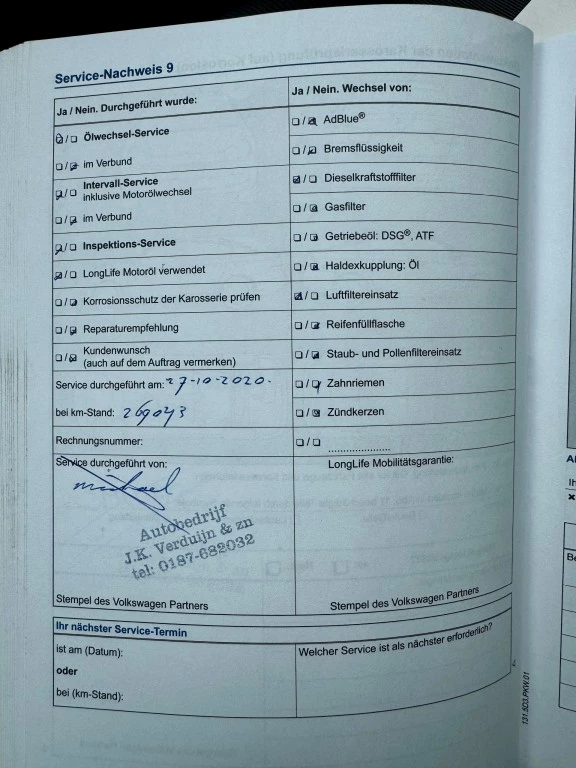 Service-Nachweis 9
Ja / Nein. Durchgeführt wurde:
Ölwechsel-Service
im Verbund
Intervall-Service
inklusive Motorölwechsel
im Verbund
Inspektions-Service
LongLife Motoröl verwendet
Korrosionsschutz der Karosserie prüfen
Reparaturempfehlung
Kundenwunsch
(auch auf dem Auftrag vermerken)
Service durchgeführt am: 27-10-2020.
bei km-Stand: 269043
Rechnungsnummer:
Service durchgeführt von:
michael
Autobedrijf
J.K. Verduijn & zn
tel: 0187-682032
Stempel des Volkswagen Partners
Ja / Nein. Wechsel von:
AdBlue®
Bremsflüssigkeit
Dieselkraftstofffilter
Gasfilter
Getriebeöl: DSG®, ATF
Haldexkupplung: Öl
Luftfiltereinsatz
Reifenfüllflasche
Staub- und Pollenfiltereinsatz
Zahnriemen
Zündkerzen
LongLife Mobilitätsgarantie:
Stempel des Volkswagen Partners
Ihr nächster Service-Termin
ist am (Datum):
oder
bei (km-Stand):
Welcher Service ist als nächster erforderlich?
131.5D3.PKW.01